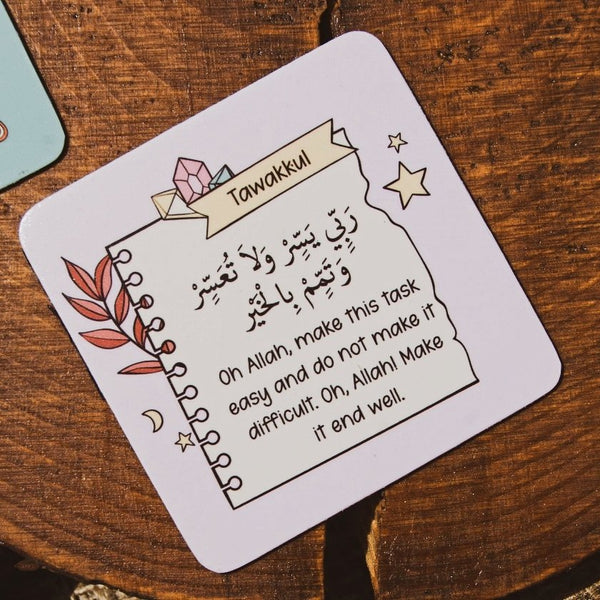 Tawakkul
رَبِّي يَسِّرْ وَلَا تُعَسِّرْ
وَتَمِّمْ بِالْخَيْرِ
Oh Allah, make this task
easy and do not make it
difficult. Oh, Allah! Make
it end well.